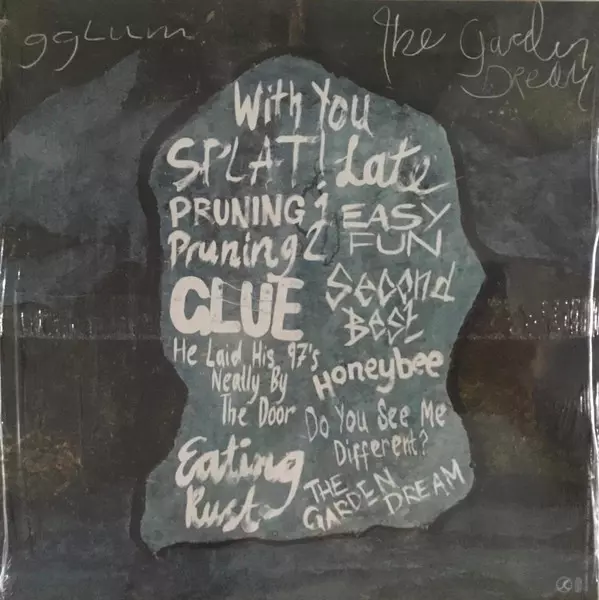 gglum
The Garden
Dream
With You
SPLAT! Late
PRUNING 1
Pruning 2
EASY
FUN
GLUE
Second
Best
He Laid His 97's
Neatly By
The Door
Honeybee
Do You See Me
Different?
Eating
Rust
THE
GARDEN DREAM